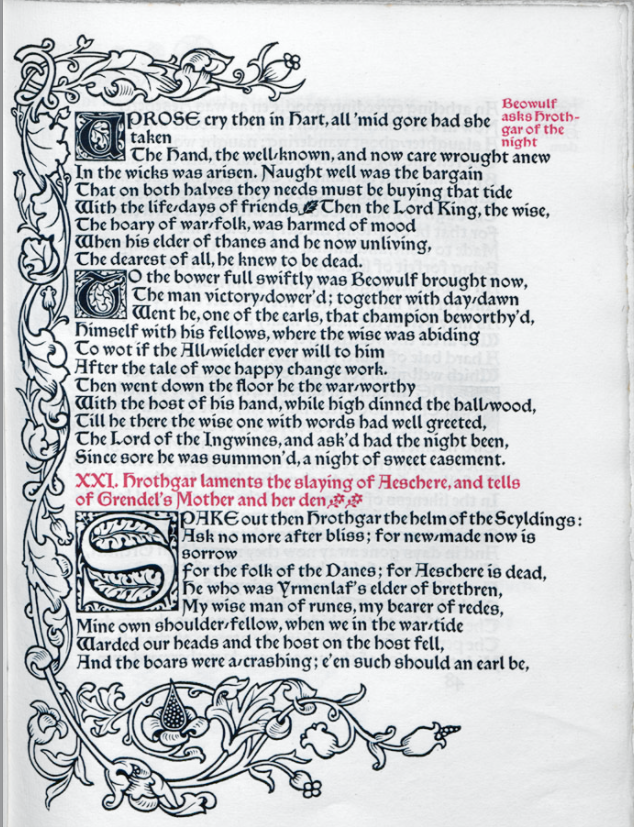 Beowulf
asks Hroth-
gar of the
night
UPROSE cry then in Hart, all 'mid gore had she
taken
The Hand, the well-known, and now care wrought anew
In the wicks was arisen. Naught well was the bargain
That on both halves they needs must be buying that tide
With the life-days of friends. Then the Lord King, the wise,
The hoary of war-folk, was harmed of mood
When his elder of thanes and he now unliving,
The dearest of all, he knew to be dead.
TO the bower full swiftly was Beowulf brought now,
The man victory-dower'd; together with day-dawn
Went he, one of the earls, that champion beworthy'd,
Himself with his fellows, where the wise was abiding
To wot if the All-wielder ever will to him
After the tale of woe happy change work.
Then went down the floor he the war-worthy
With the host of his hand, while high dinned the hall-wood,
Till he there the wise one with words had well greeted,
The Lord of the Ingwines, and ask'd had the night been,
Since sore he was summon'd, a night of sweet easement.
XXI. Hrothgar laments the slaying of Aeschere, and tells
of Grendel's Mother and her den
SPAKE out then Hrothgar the helm of the Scyldings:
Ask no more after bliss; for new-made now is
sorrow
For the folk of the Danes; for Aeschere is dead,
He who was Yrmenlaf's elder of brethren,
My wise man of runes, my bearer of redes,
Mine own shoulder-fellow, when we in the war-tide
Warded our heads and the host on the host fell,
And the boars were a-crashing; e'en such should an earl be,